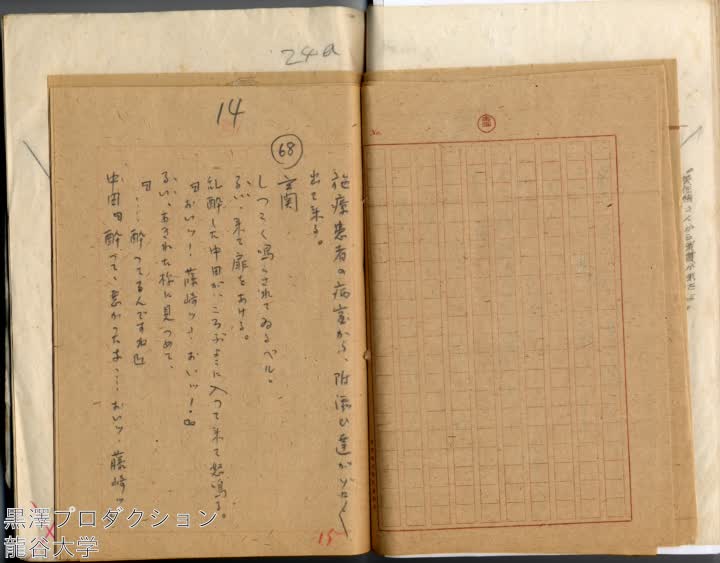 24a
14
施療患者の病室から、附添ひ達がぞろ〱
出て来る。
68
玄関
しつこく鳴らされてゐるベル。
るい、来て扉をあける。
乱酔した中田が、ころぶように入って来て怒鳴る。
「おいッ! 藤崎ッ! おいッ!」
るい、あきれた様に見つめて、
「……酔ってるんですね」
中田「酔って、悪かったな……おいッ、藤崎ッ
15
No.
黒澤プロダクション
龍谷大学